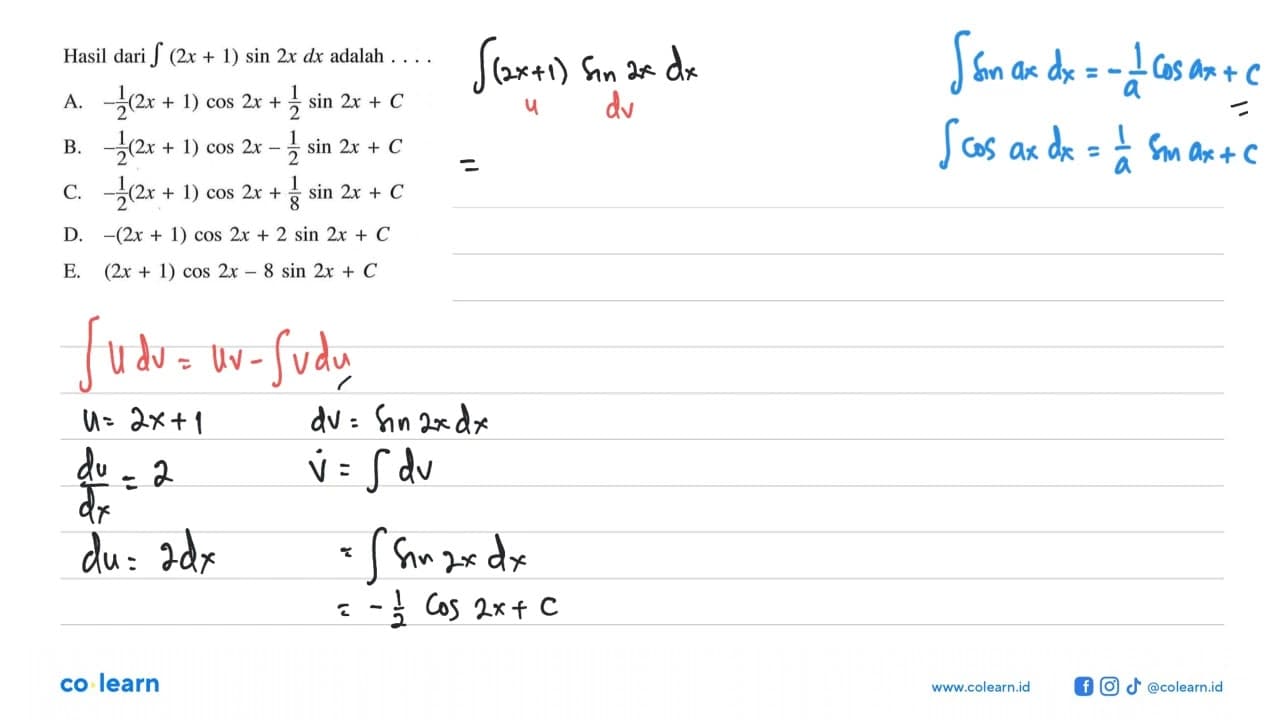 Hasil dari ∫ (2x + 1) sin 2x dx adalah . . . .
A. -1/2(2x + 1) cos 2x + 1/2 sin 2x + C
B. -1/2(2x + 1) cos 2x - 1/2 sin 2x + C
C. -1/2(2x + 1) cos 2x + 1/8 sin 2x + C
D. -(2x + 1) cos 2x + 2 sin 2x + C
E. (2x + 1) cos 2x - 8 sin 2x + C
∫(2x+1) sin 2x dx
u dv
=
∫ sin ax dx = -1/a cos ax + c
=
∫ cos ax dx = 1/a sin ax + c
∫ u dv = uv - ∫ v du
u = 2x+1 dv = sin 2x dx
du/dx = 2 v = ∫ dv
du = 2dx = ∫ sin 2x dx
= -1/2 cos 2x + c
co learn
www.colearn.id
@colearn.id